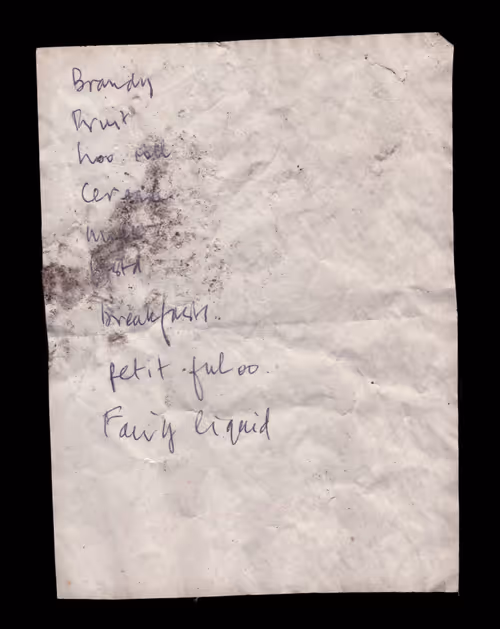 Brandy
Fruit
loo roll
Cereal
breakfasts.
petit-filoo
Fairy liquid